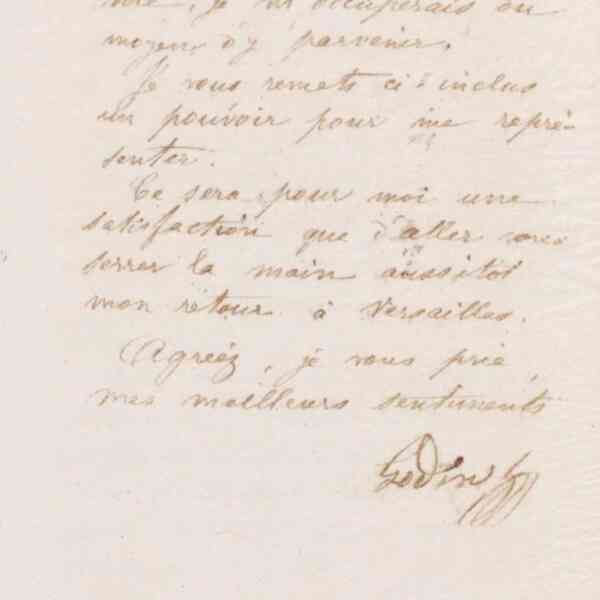 je m'occuperais du
moyen d'y parvenir.
Je vous remets ci-inclus
un pouvoir pour me repré-
senter.
Ce sera pour moi une
satisfaction que d'aller vous
serrer la main aussitot
mon retour à Versailles.
Agréez, je vous prie,
mes meilleurs sentiments
Godin